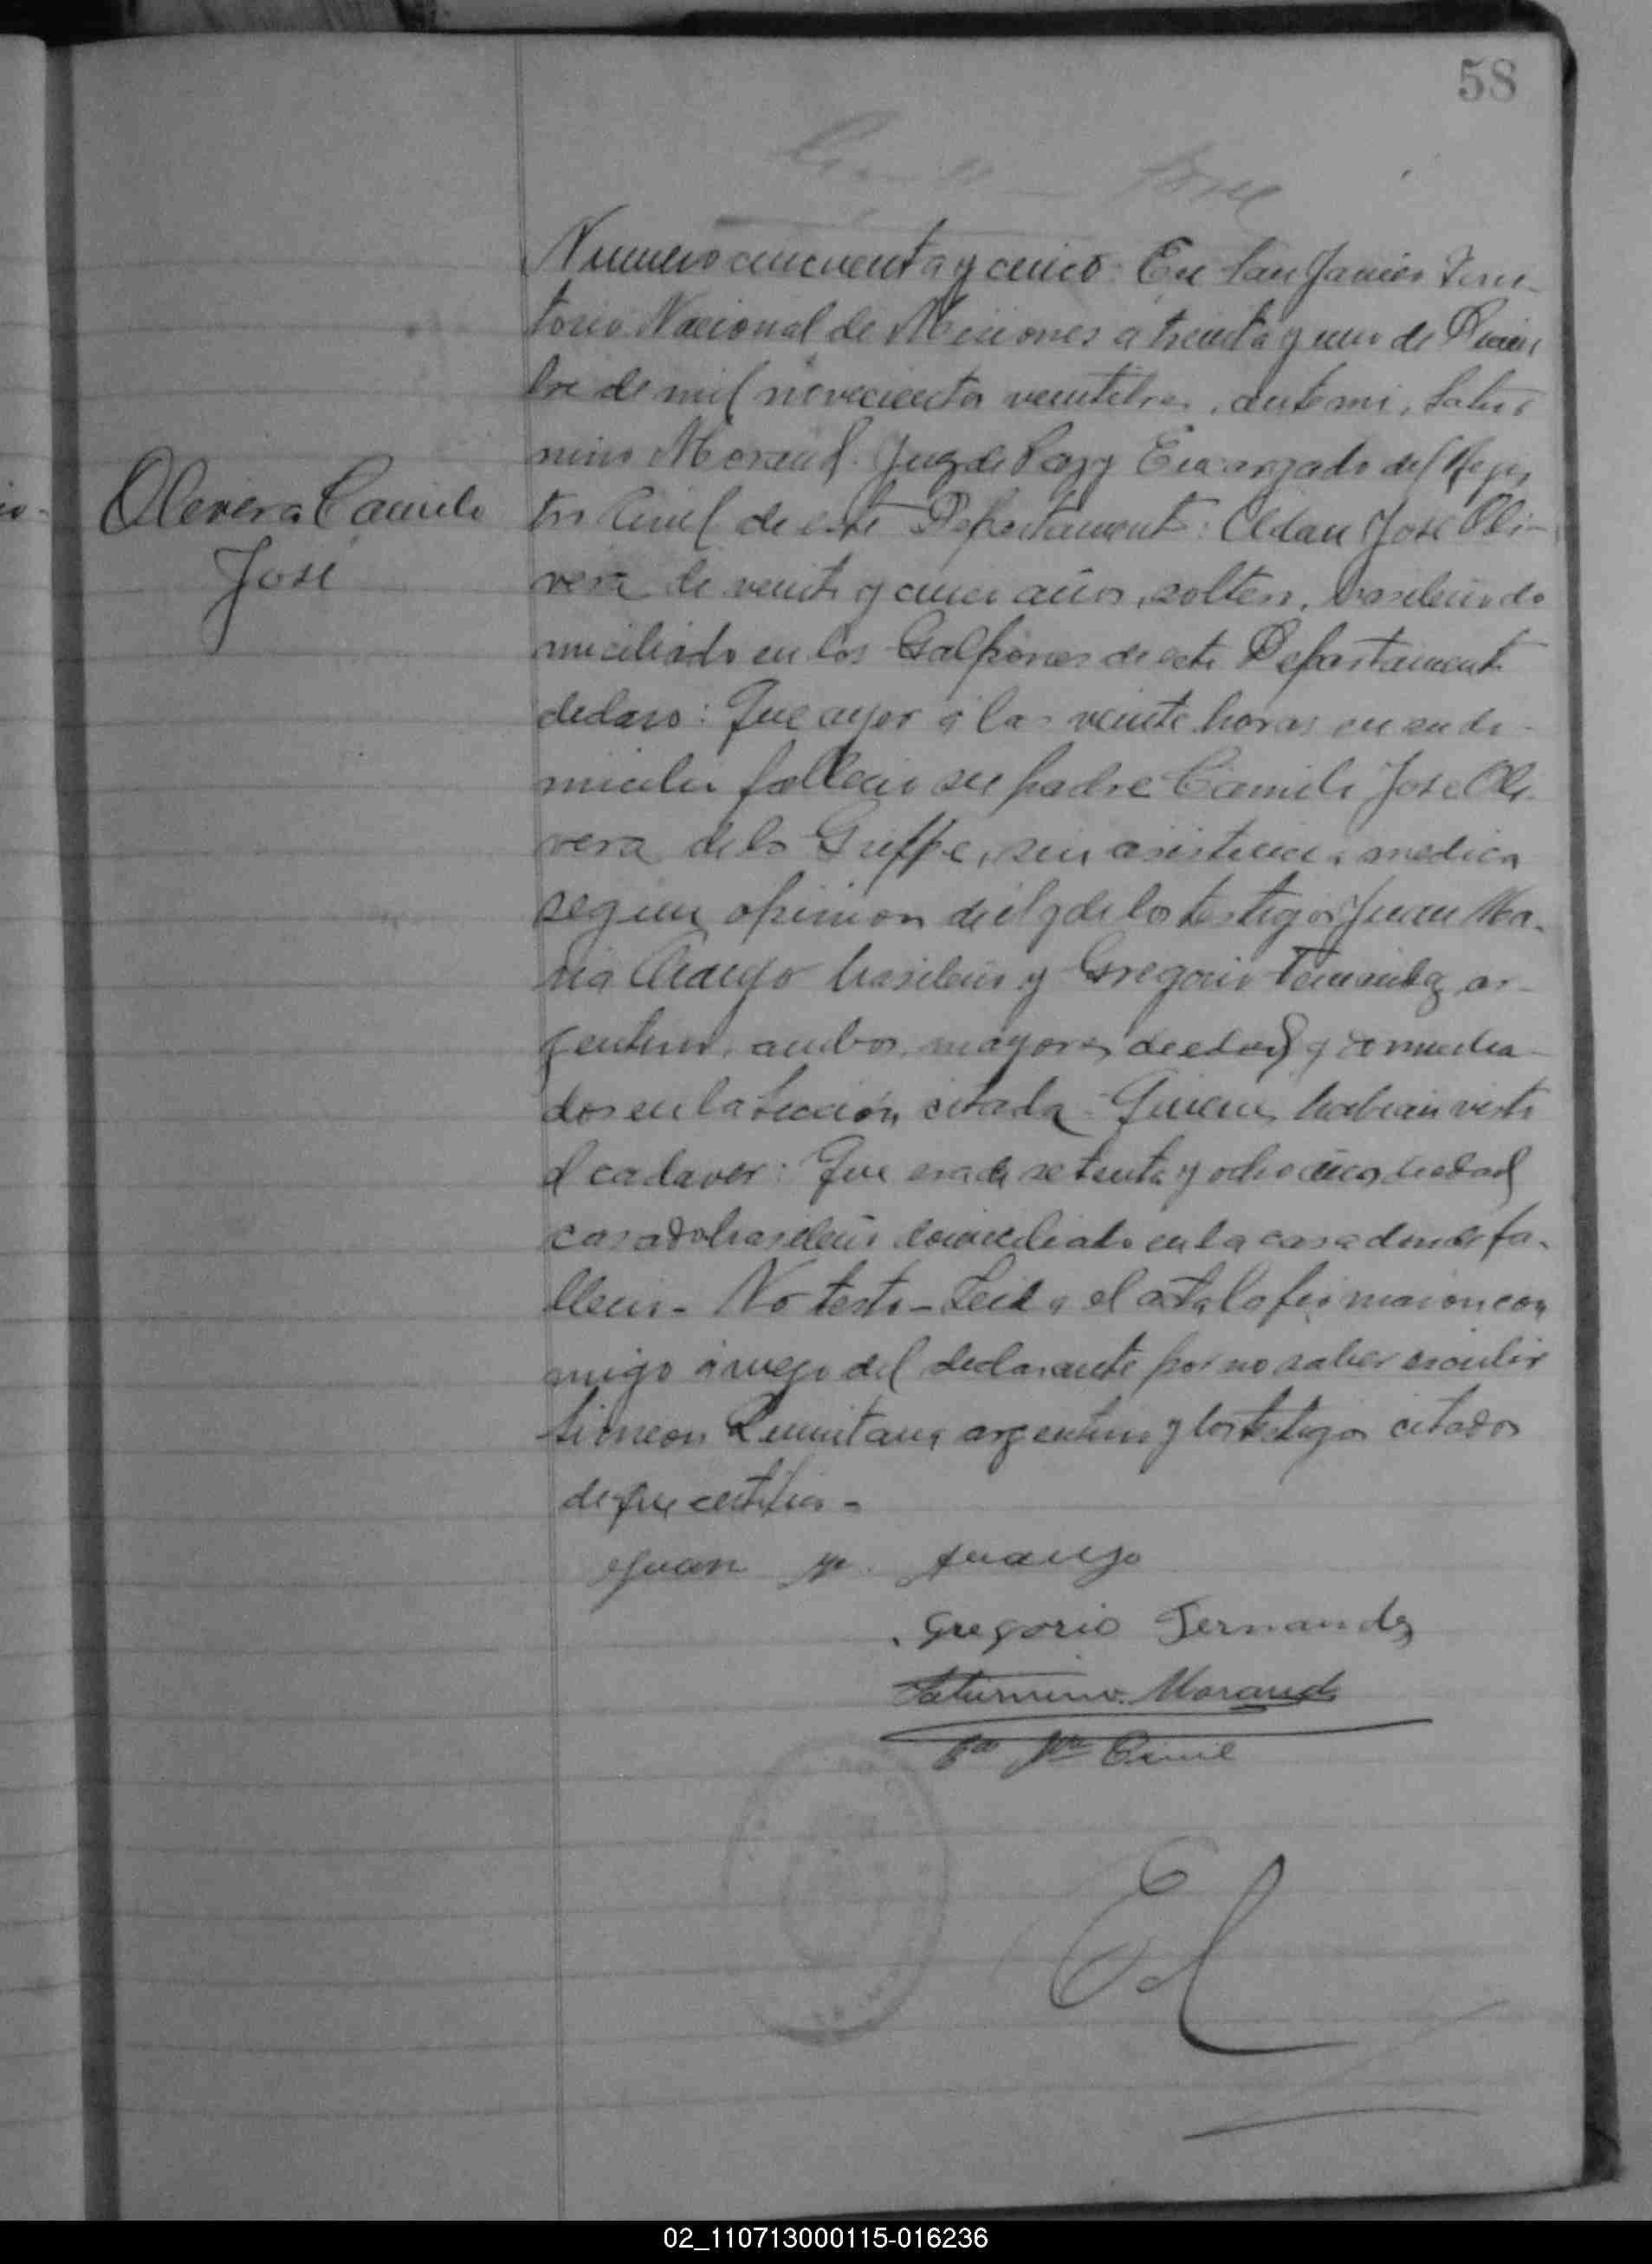 58
Numero cincuenta y cinco: En San Javier Terri-
torio Nacional de Misiones a treinta y uno de Diciem
bre de mil novecientos veintitres, ante mi, Satur
nino Morand. Juez de Paz y Encargado del Regis
tro Civil de este Departamento: Adan José Oli-
vera de veinte y cinco años, soltero, brasileño do
miciliado en los Galpones de este Departamento
declaro: Que ayer á las veinte horas en su do-
micilio fallecio su padre Camilo José Oli-
vera de la Grippe, sin asistencia medica
segun opinion de él y de los testigos Juan Ma-
ria Araujo brasileño y Gregorio Fernandez ar-
gentino, ambos mayores de edad y domicilia-
dos en la Seccion citada. Quienes habian visto
el cadaver: Que era de setenta y ocho años de edad
casado brasileño domiciliado en la casa donde fa-
llecio - No testo - Leida el acta la firmaron con
migo á ruego del declarante por no saber escribir
Simeon argentino y los testigos citados
de que certifico -
Olivera Camilo
José
Juan M. Araujo
Gregorio Fernandez
Saturnino Morand
Civil
02_110713000115-016236